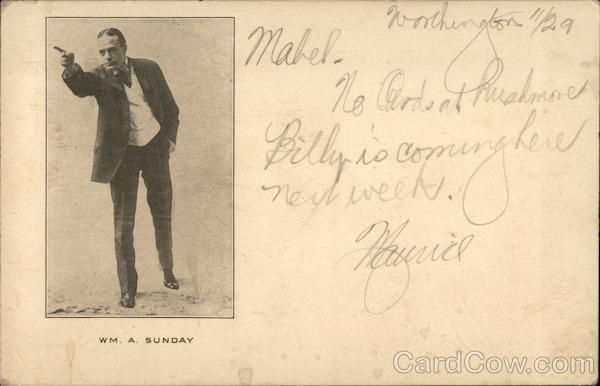 Worthington 11/29
Mabel.
No Cards at Rushmore
Billy is coming here
next week.
Maurice
WM. A. SUNDAY
CardCow.com